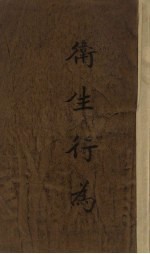 衛生行為